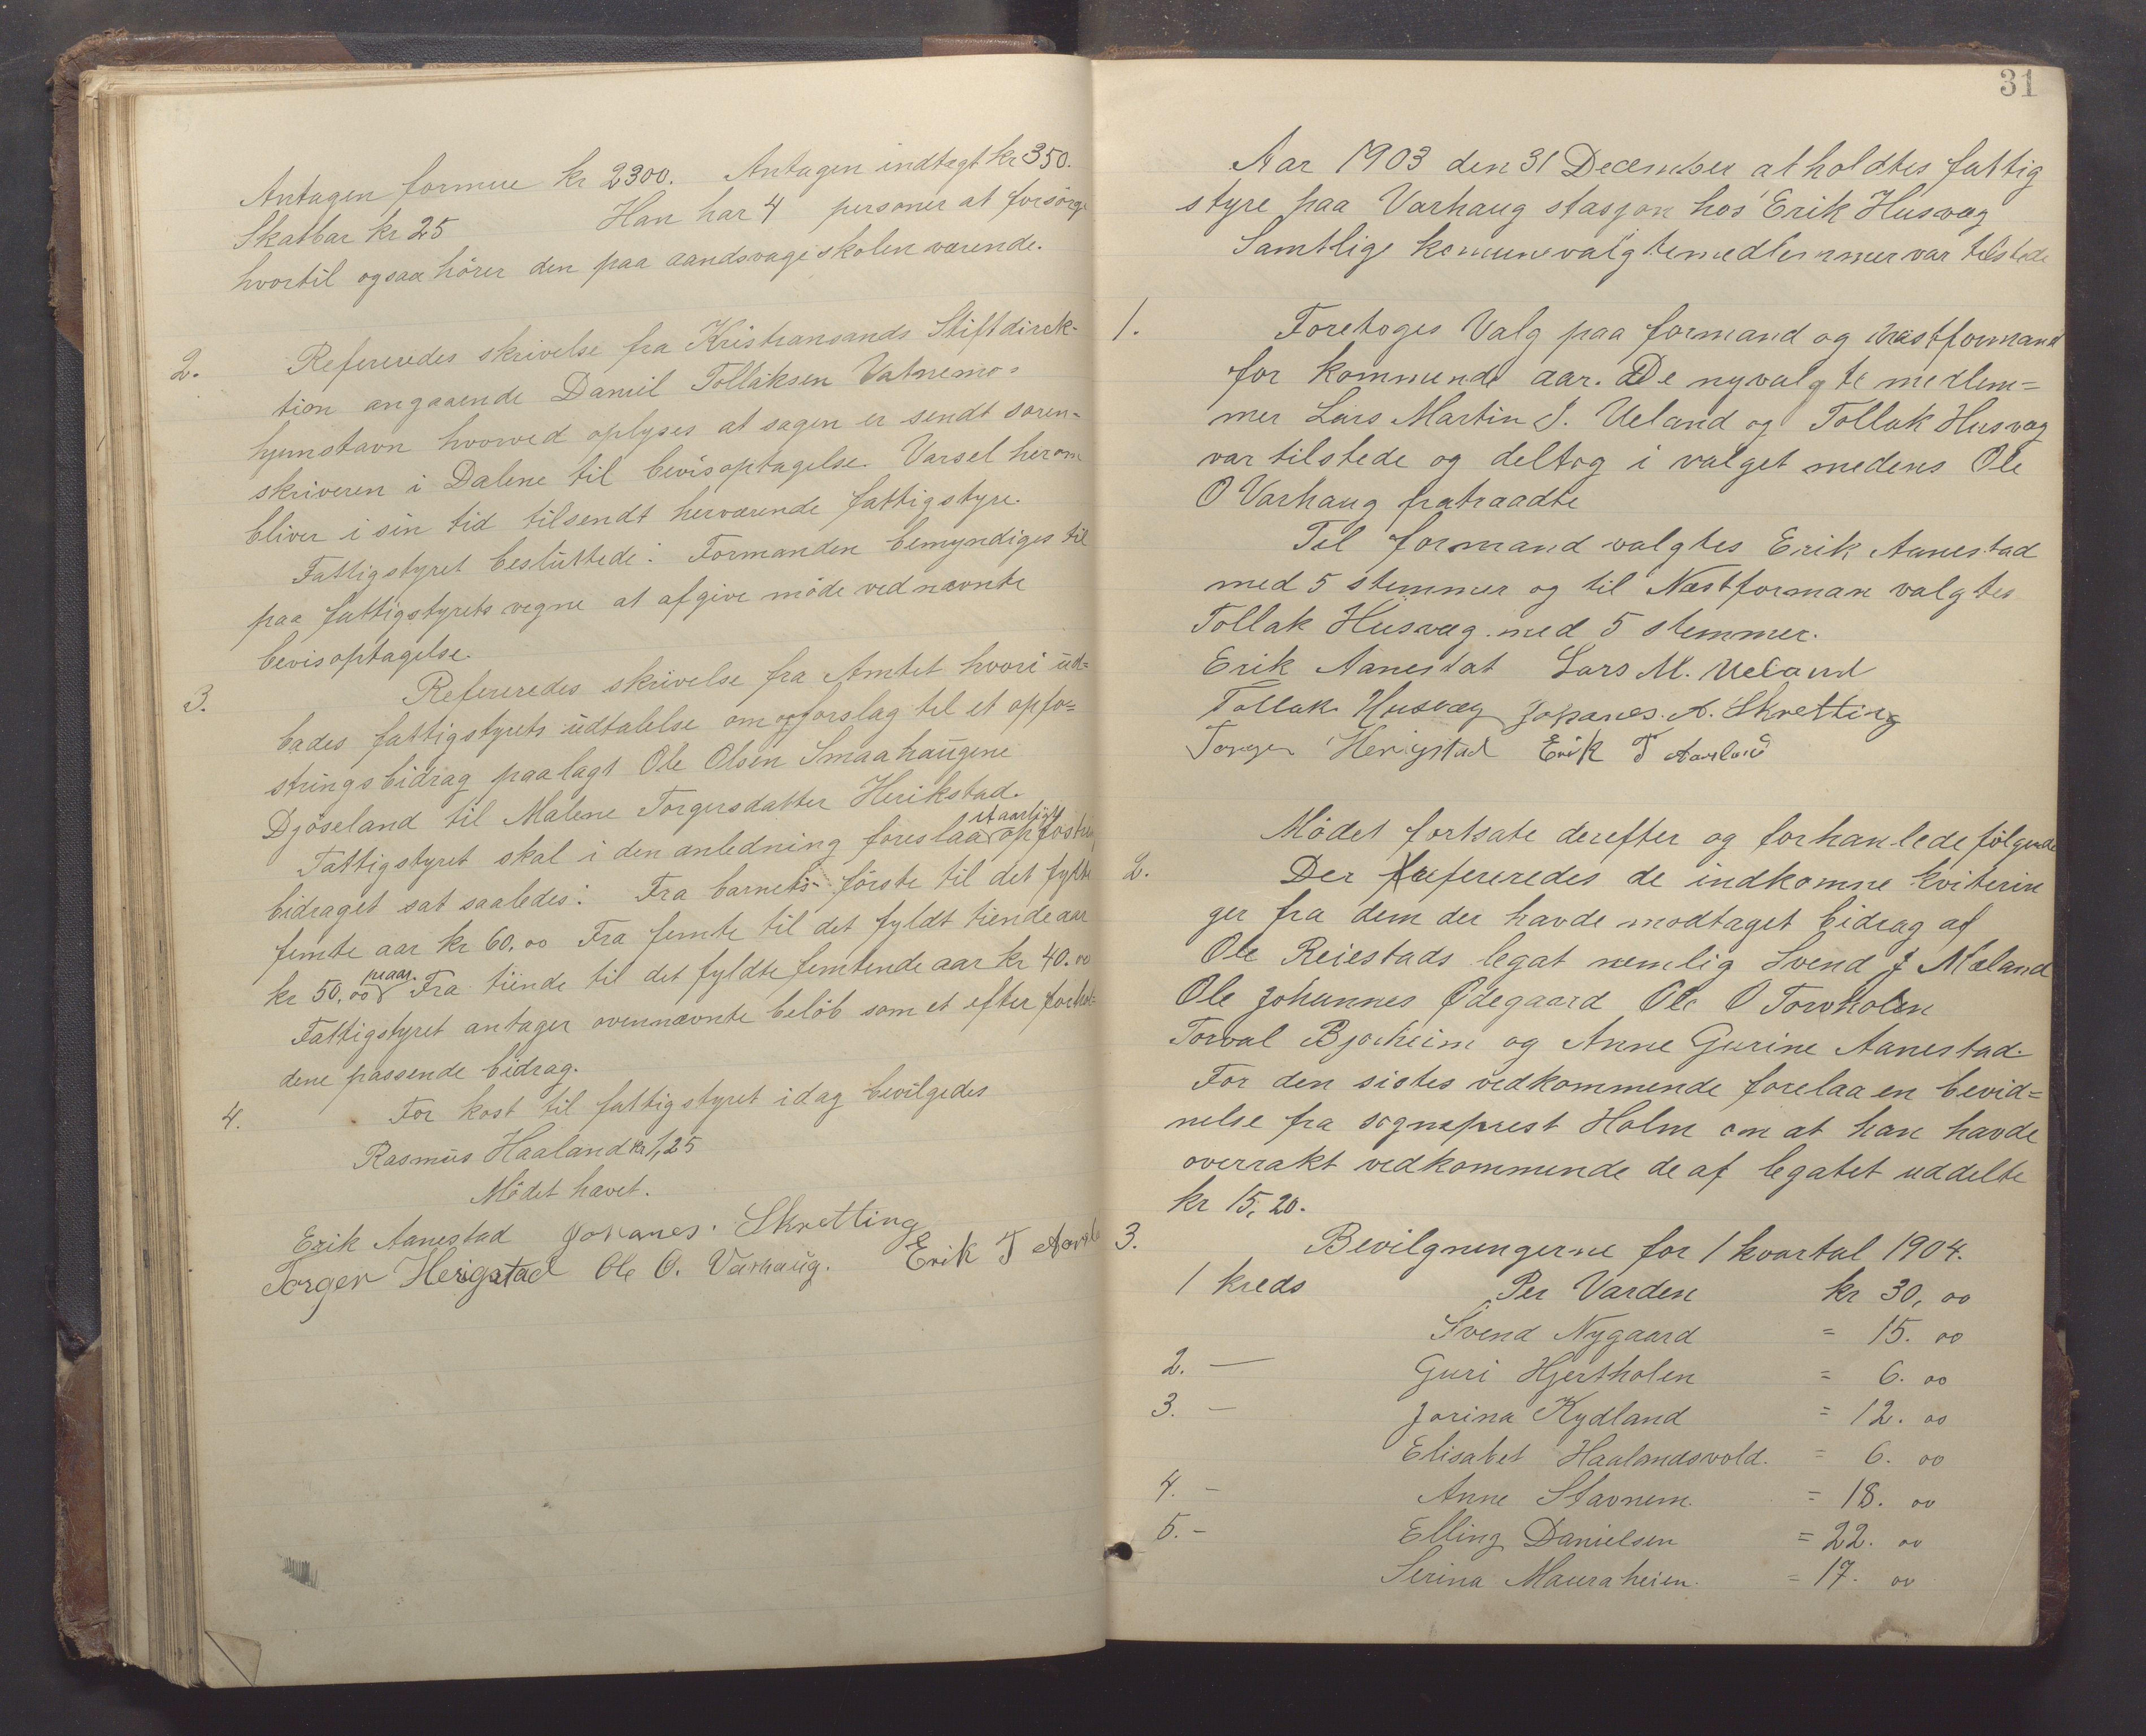 Antagen formue kr 2300. Antagen indtægt kr 350.
Skatbar kr 25 Han har 4 personer at forsørge
hvortil ogsaa hører den paa aandsvageskolen værende.
2. Refereredes skrivelse fra Kristiansands Stiftdirek-
tion angaaende Daniel Tollaksen Vatnemo=
hjemstavn hvorved oplyses at sagen er sendt soren-
skriveren i Dalene til bevisoptagelse. Varsel herom
bliver i sin tid tilsendt herværende fattigstyre.
Fattigstyret besluttede: Formanden bemyndiges til
paa fattigstyrets vegne at afgive møde ved nævnte
bevisoptagelse.
3. Refereredes skrivelse fra Amtet hvori ud=
bades fattigstyrets udtalelse om og forslag til et opfo=
stringsbidrag paalagt Ole Olsen Smaahaugene
Djøseland til Malene Torgersdatter Herikstad.
Fattigstyret skal i den anledning foreslaa et aarligt opfostrings
bidraget sat saaledes: Fra barnets første til det fyldte
femte aar kr 60.00 Fra femte til det fyldt tiende aar
kr 50,00 pr aar. Fra tiende til det fyldte femtende aar kr 40.00
Fattigstyret antager ovennævnte beløb som et efter forhol=
dene passende bidrag.
4. For kost til fattigstyret idag bevilgedes
Rasmus Haaland kr 1,25
Mødet hævet.
Erik Aanestad Johanes. Skretting
Torger Herigstad Ole O. Varhaug. Erik T Aarsland
31
Aar 1903 den 31 December atholdtes fattig
styre paa Varhaug stasjon hos Erik Husvæg
Samtlige komunevalgte medlemmer var tilstede
1. Foretoges Valg paa formand og næstformand
for kommende aar. De nyvalgte medlem=
mer Lars Martin S. Ueland og Tollak Husvæg
var tilstede og deltog i valget medens Ole
O Varhaug fratraadte
Til formand valgtes Erik Aanestad
med 5 stemmer og til Næstforman valgtes
Tollak Husvæg med 5 stemmer.
Erik Aanestat Lars M. Ueland
Tollak Husvæg Johanes. A. Skretting
Torger Herigstad Erik T Aarsland
Mødet fortsate derefter og forhanlede følgende
2. Der refereredes de indkomne kviterin
ger fra dem der havde modtaget bidrag af
Ole Reiestads legat nemlig Svend J Mæland
Ole Johannes Ødegaard Ole O Torvholen
Torval Bjorheim og Anne Gurine Aanestad.
For den sistes vedkommende forelaa en bevid=
nelse fra sogneprest Holm om at han havde
overrakt vedkommende de af legatet uddelte
kr 15,20.
3. Bevilgningerne for 1 kvartal 1904.
1 kreds Per Varden kr 30,00
Svend Nygaard = 15.00
2. — Guri Hjertholen = 6.00
3. - Jorina Kydland = 12.00
Elisabet Haalandsvold. = 6.00
4. - Anne Stavnem. = 18.00
5. - Elling Danielsen = 22.00
Serina Mauraheien. = 17.00